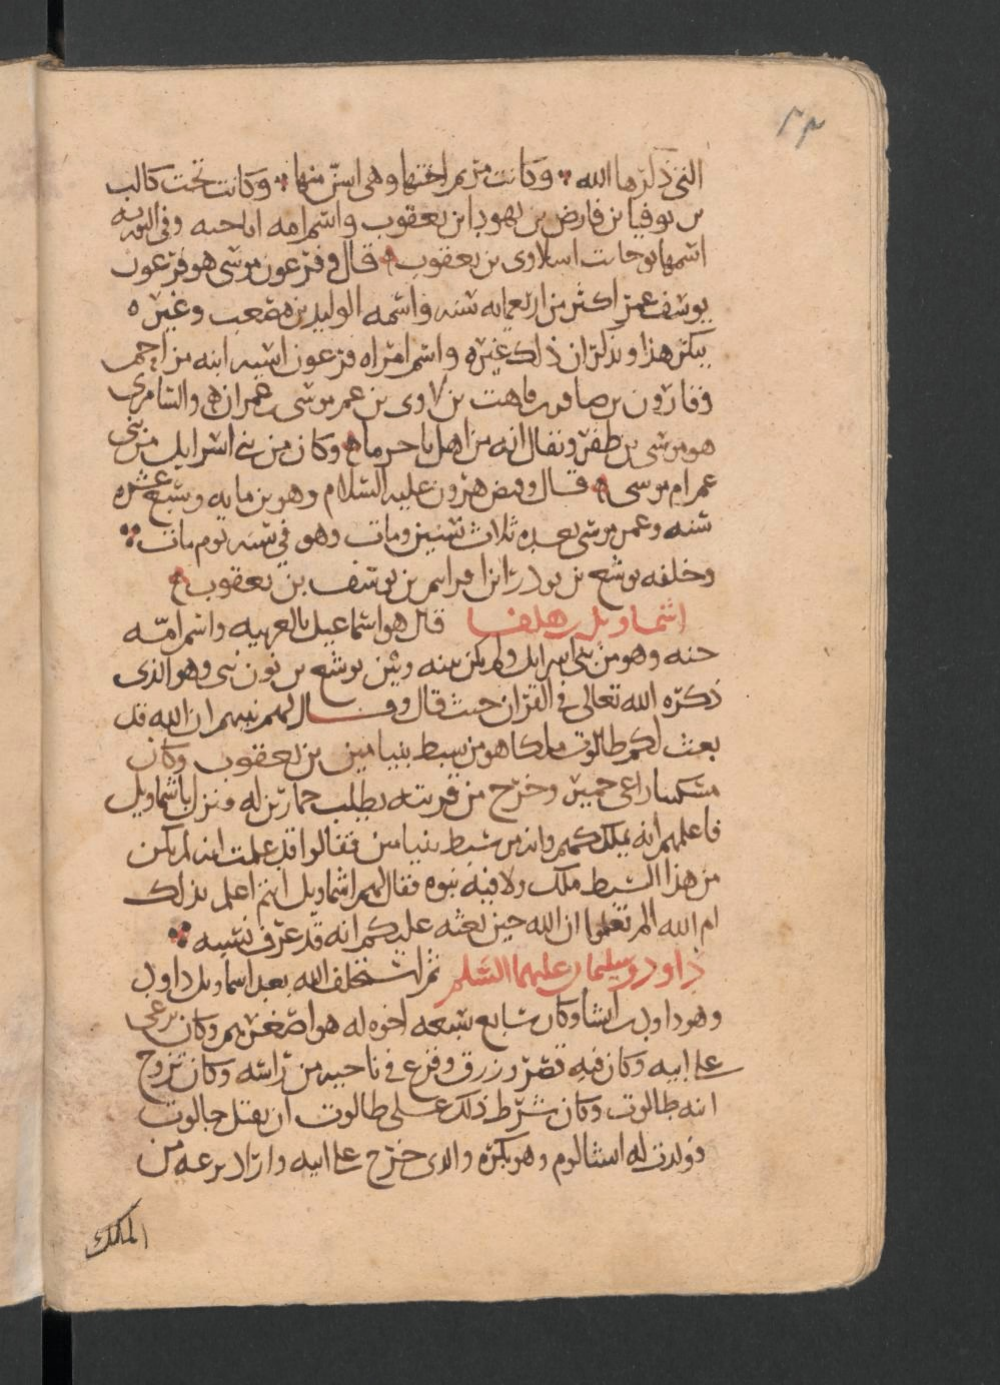 ٢٣
التي ذكرها الله وكانت مريم اختها وهي اسن منها وكانت تحت كالب
بن يوفيا بن فارض بن يهودا بن يعقوب واسم امه اباحيه وفي التورية
اسمها يوخابت اسلاوى بن يعقوب قال وفرعون موسى هو فرعون
يوسف عمر اكثر من اربعمايه سنه واسمه الوليد بن مصعب وغيره
ينكر هذا ويذكر ان ذلك غيره واسم امراه فرعون اسيه ابنه مزاحم
وقارون بن صافر بن قاهت بن لاوى بن عم موسى بن عمران والسامرى
هو موسى بن طفر ويقال انه من اهل باجرما وكان من بني اسرايل من بني
عم ام موسى قال وقبض هرون عليه السلام وهو بن مايه وسبع عشره
سنه وعمر موسى بعده ثلاث سنين ومات وهو في سنه يوم مات
وخلفه يوشع بن نون من افرايم بن يوسف بن يعقوب
اشماويل بن هلفا قال هو اسماعيل بالعربيه واسم امه
حنه وهو من بني اسرايل ولم يكن بينه وبين يوشع بن نون نبى وهو الذى
ذكره الله تعالى في القران حيث قال وقال لهم نبيهم ان الله قد
بعث لكم طالوت ملكا هو من سبط بنيامين بن يعقوب وكان
مسكينا راعى حمير وخرج من قريته يطلب حمارين له فنزل باشماويل
فاعلمهم انه يملككم وانه من سبط بنيامين فقالوا قد علمت انه لم يكن
من هذا السبط ملك ولا فيه نبوه فقال لهم اشماويل انتم اعلم بذلك
ام الله الم تعلموا ان الله حين بعثه عليكم انه قد عرف نسبه
داود وسليمان عليهما السلم ثم استخلف الله بعد اشماويل داود
وهو داود بن ايشا وكان سابع سبعه اخوه له هو اصغرهم وكان يرعى
على ابيه وكان فيه قصر وزرق وقرع في ناحيه من راسه وكان تزوج
ابنه طالوت وكان شرط ذلك على طالوت ان يقتل جالوت
فولدت له ابشالوم وهو بكره والذى خرج على ابيه واراد نزعه من
الملك